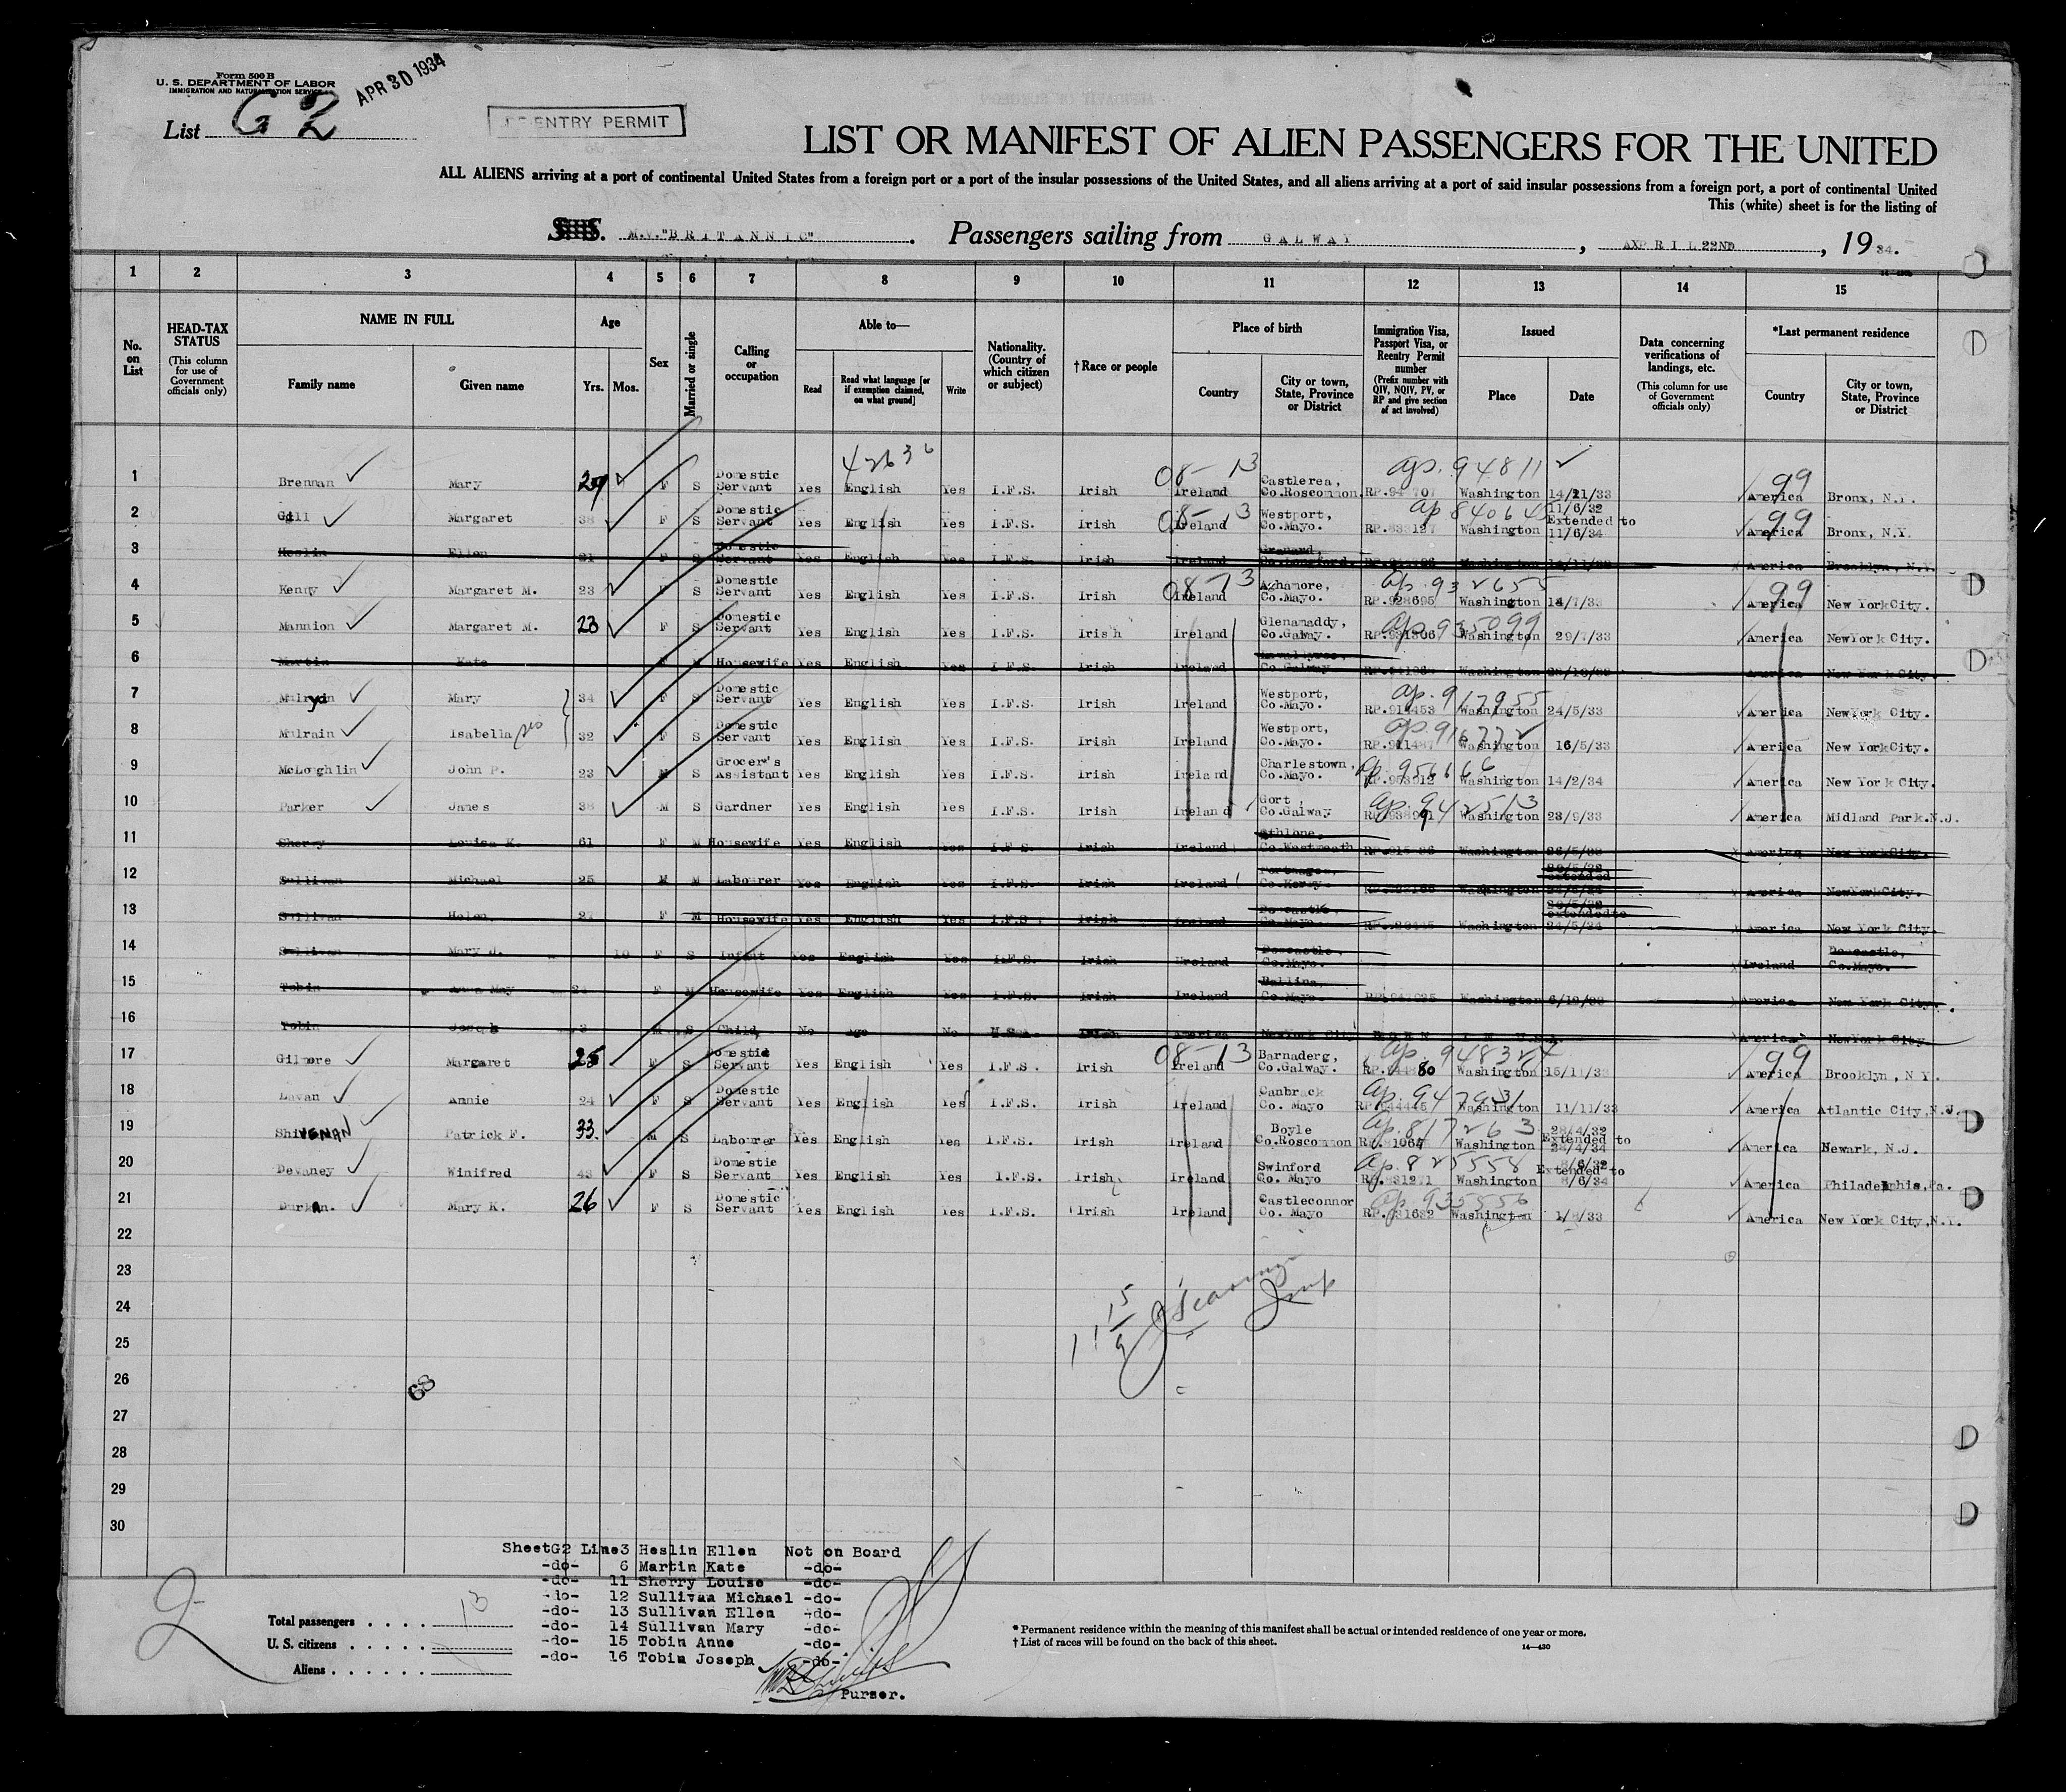 Form 500 B
U. S. DEPARTMENT OF LABOR
IMMIGRATION AND NATURALIZATION SERVICE
APR 30 1934
List G 2
ENTRY PERMIT
LIST OR MANIFEST OF ALIEN PASSENGERS FOR THE UNITED
ALL ALIENS arriving at a port of continental United States from a foreign port or a port of the insular possessions of the United States, and all aliens arriving at a port of said insular possessions from a foreign port, a port of continental United
This (white) sheet is for the listing of
S. M.V."BRITANNIC". Passengers sailing from GALWAY, AXPRIL 22ND, 1934.
1 2 3 4 5 6 7 8 9 10 11 12 13 14 15
No. on List
HEAD-TAX STATUS (This column for use of Government officials only)
NAME IN FULL Family name Given name
Age Yrs. Mos.
Sex
Married or single
Calling or occupation
Able to— Read Read what language [or if exemption claimed, on what ground] Write
Nationality. (Country of which citizen or subject)
†Race or people
Place of birth Country City or town, State, Province or District
Immigration Visa, Passport Visa, or Reentry Permit number (Prefix number with QIV, NQIV, PV, or RP and give section of act involved)
Issued Place Date
Data concerning verifications of landings, etc. (This column for use of Government officials only)
*Last permanent residence Country City or town, State, Province or District
42636 08-13 ap. 94811
1 Brennan Mary 29 F S Domestic Servant Yes English Yes I.F.S. Irish Ireland Castlerea, Co.Roscommon. Washington 14/11/33 99 America Bronx, N.Y.
2 Gill Margaret 38 F S Domestic Servant Yes English Yes I.F.S. Irish Ireland Westport, Co.Mayo. ap 840645 Washington 11/6/32 Extended to 11/6/34 99 America Bronx, N.Y.
3 Heslin Ellen 21 F S Domestic Servant Yes English Yes I.F.S. Irish Ireland Granard, Co.Longford. Washington America Brooklyn, N.Y.
4 Kenny Margaret M. 23 F S Domestic Servant Yes English Yes I.F.S. Irish 08-13 Ireland Co.Mayo. ap. 932655 RP.928695 Washington 14/7/33 99 America New York City.
5 Mannion Margaret M. 23 F S Domestic Servant Yes English Yes I.F.S. Irish Ireland Glenamaddy, Co.Galway. ap. 935099 RP.931306 Washington 29/7/33 America New York City.
6 Martin Kate F M Housewife Yes English Yes I.F.S. Irish Ireland Co.Galway Washington America New York City.
7 Mulryan Mary 34 F S Domestic Servant Yes English Yes I.F.S. Irish Ireland Westport, Co.Mayo. ap. 917955 Washington 24/5/33 America New York City.
8 Mulrain Isabella 32 F S Domestic Servant Yes English Yes I.F.S. Irish Ireland Westport, Co.Mayo. ap. 916772 Washington 16/5/33 America New York City.
9 McLoghlin John P. 23 M S Grocer's Assistant Yes English Yes I.F.S. Irish Ireland Charlestown, Co.Mayo. ap. 956166 Washington 14/2/34 America New York City.
10 Parker James 38 M S Gardner Yes English Yes I.F.S. Irish Ireland Gort, Co.Galway ap. 942513 Washington 28/9/33 America Midland Park.N.J.
11 Sherry Louisa K. 61 F M Housewife Yes English Yes I.F.S. Irish Ireland Athlone, Co.Westmeath Washington America New York City.
12 Sullivan Michael 25 M M Labourer Yes English Yes I.F.S. Irish Ireland Co.Kerry. Washington extended America New York City.
13 Sullivan Helen F M Housewife Yes English Yes I.F.S. Irish Ireland Co.Mayo. Washington extended to 24/5/34 America New York City.
14 Sullivan Mary J. 10 F S Infant Yes English Yes I.F.S. Irish Ireland Co.Mayo. Ireland Co.Mayo.
15 Tobin Anna May F M Housewife Yes English Yes I.F.S. Irish Ireland Ballina, Co.Mayo. Washington America New York City.
16 Tobin Joseph 3 M S Child, No age No U.S.A. Irish America New York City BORN IN U.S.A. America New York City.
17 Gilmore Margaret 25 F S Domestic Servant Yes English Yes I.F.S. Irish 08-13 Ireland Barnaderg, Co.Galway. ap. 948324 Washington 15/11/33 99 America Brooklyn, N.Y.
18 Lavan Annie 24 F S Domestic Servant Yes English Yes I.F.S. Irish Ireland Canbrack Co. Mayo ap. 947931 Washington 11/11/33 America Atlantic City,N.J.
19 Patrick F. 33. M S Labourer Yes English Yes I.F.S. Irish Ireland Boyle Co.Roscommon ap. 817263 Washington 28/4/32 Extended to 28/4/34 America Newark, N.J.
20 Devaney Winifred 43 F S Domestic Servant Yes English Yes I.F.S. Irish Ireland Swinford Co. Mayo ap. 825558 Washington 8/6/32 Extended to 8/6/34 America Philadelphia,Pa.
21 Durkan. Mary K. 26 F S Domestic Servant Yes English Yes I.F.S. Irish Ireland Castleconnor Co. Mayo ap. 935556 Washington America New York City,N.Y.
22
23
24
25
26
27
28
29
30
68
SheetG2 Line3 Heslin Ellen Not on Board
-do- 6 Martin Kate -do-
-do- 11 Sherry Louise -do-
-do- 12 Sullivan Michael -do-
-do- 13 Sullivan Ellen -do-
-do- 14 Sullivan Mary -do-
-do- 15 Tobin Anne -do-
-do- 16 Tobin Joseph -do-
Purser.
2
Total passengers . . . . 13
U. S. citizens . . . . .
Aliens . . . . . .
* Permanent residence within the meaning of this manifest shall be actual or intended residence of one year or more.
† List of races will be found on the back of this sheet.
14—430